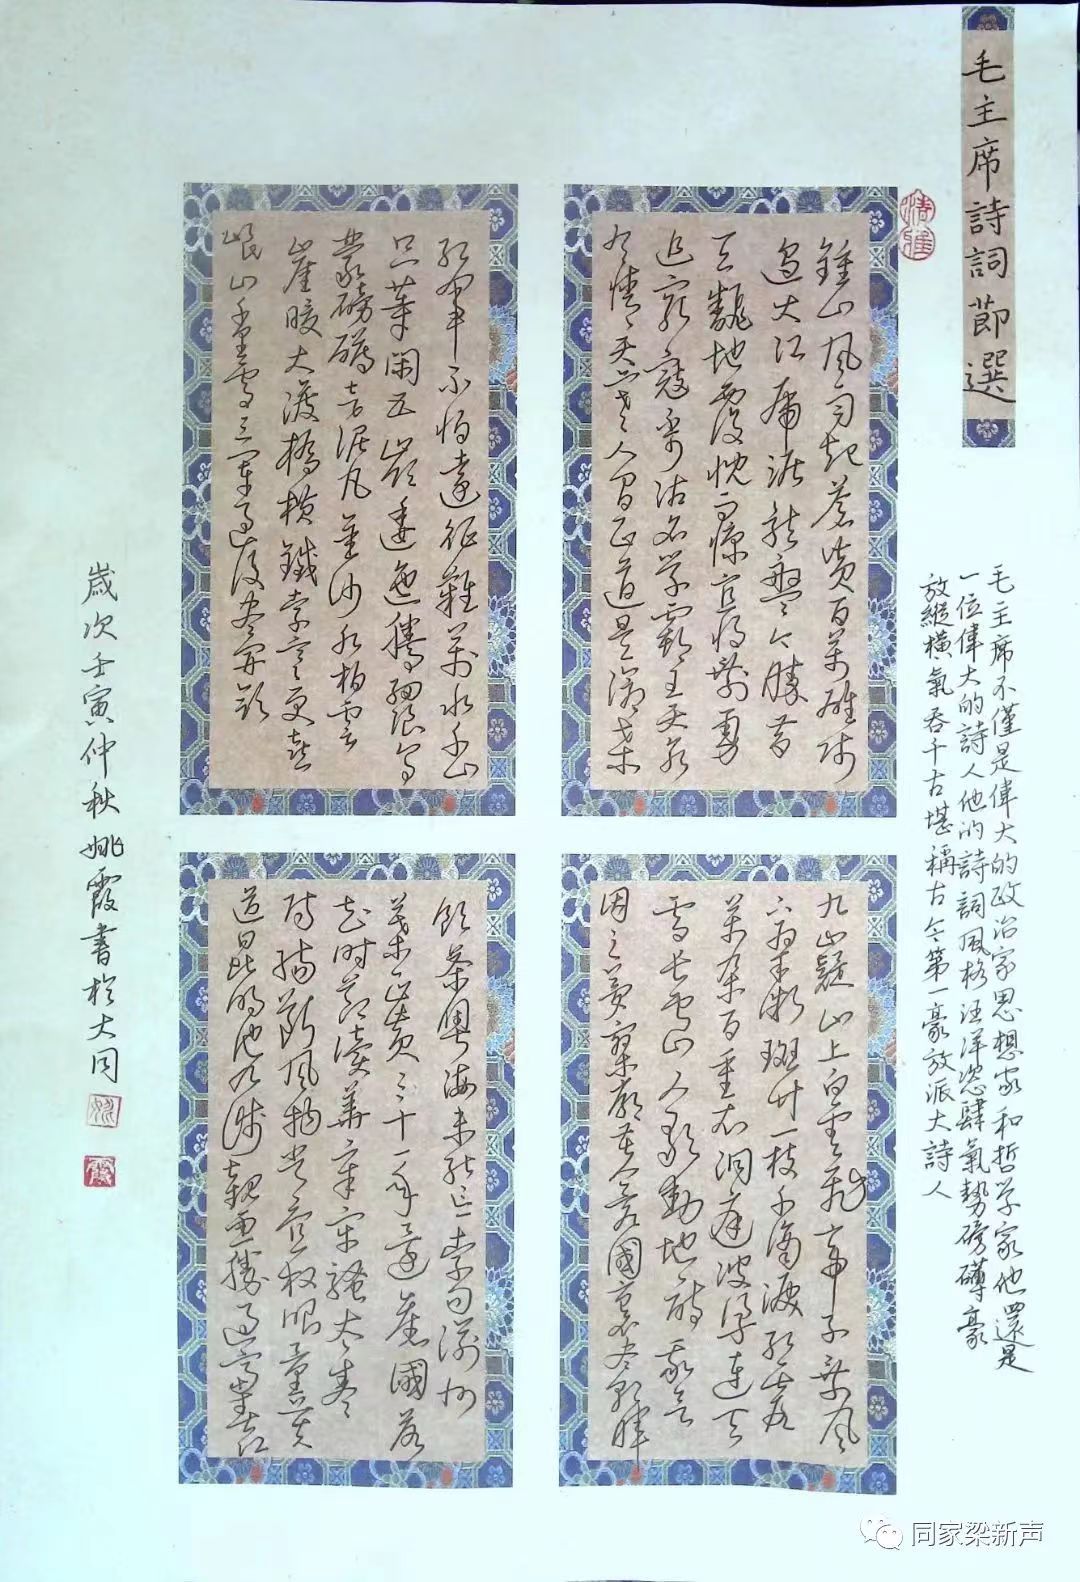 毛主席詩詞節選
清雅
毛主席不僅是偉大的政治家思想家和哲学家他還是
一位偉大的詩人他的詩詞風格汪洋恣肆氣勢磅礴豪
放縱橫氣吞千古堪稱古今第一豪放派大詩人
鍾山風雨起蒼黄百萬雄師
過大江虎踞龍盤今勝昔
天翻地覆慨而慷宜將剩勇
追窮寇不可沽名学霸王天若
有情天亦老人間正道是滄桑
紅軍不怕遠征難萬水千山
只等閑五嶺逶迤騰細浪烏
蒙磅礴走泥丸金沙水拍雲
崖暖大渡橋橫鐵索寒更喜
岷山千里雪三軍過後盡開顔
九嶷山上白雲飛帝子乘風
下翠微斑竹一枝千滴淚紅霞
萬朵百重衣洞庭波湧連天
雪長島人歌動地詩我欲
因之夢寥廓芙蓉國裏盡朝暉
飲茶粵海未能忘索句渝州
葉正黄三十一年還舊國落
花時節讀華章牢騷太盛
防腸斷風物長宜放眼量莫
道昆明池水淺觀魚勝過富春江
歲次壬寅仲秋姚霞書於大同
姚
霞
同家梁新声